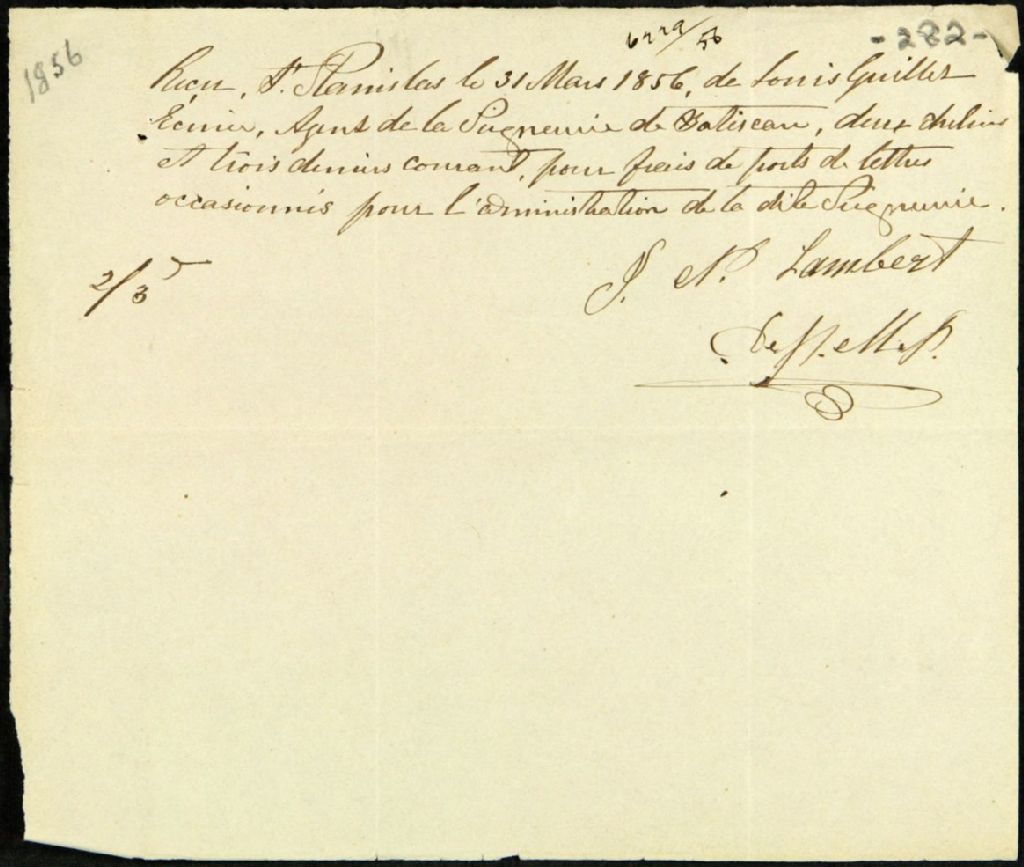 1856
6229/56
- 282 -
Recu, St. Stanislas le 31 Mars 1856, de Louis Guillet
Ecuier, Agent de la Seigneurie de Batiscan, deux chelins
et trois deniers courant, pour frais de ports de lettres
occasionnés pour l'administration de la dite Seigneurie.
2/3
J. N. Lambert